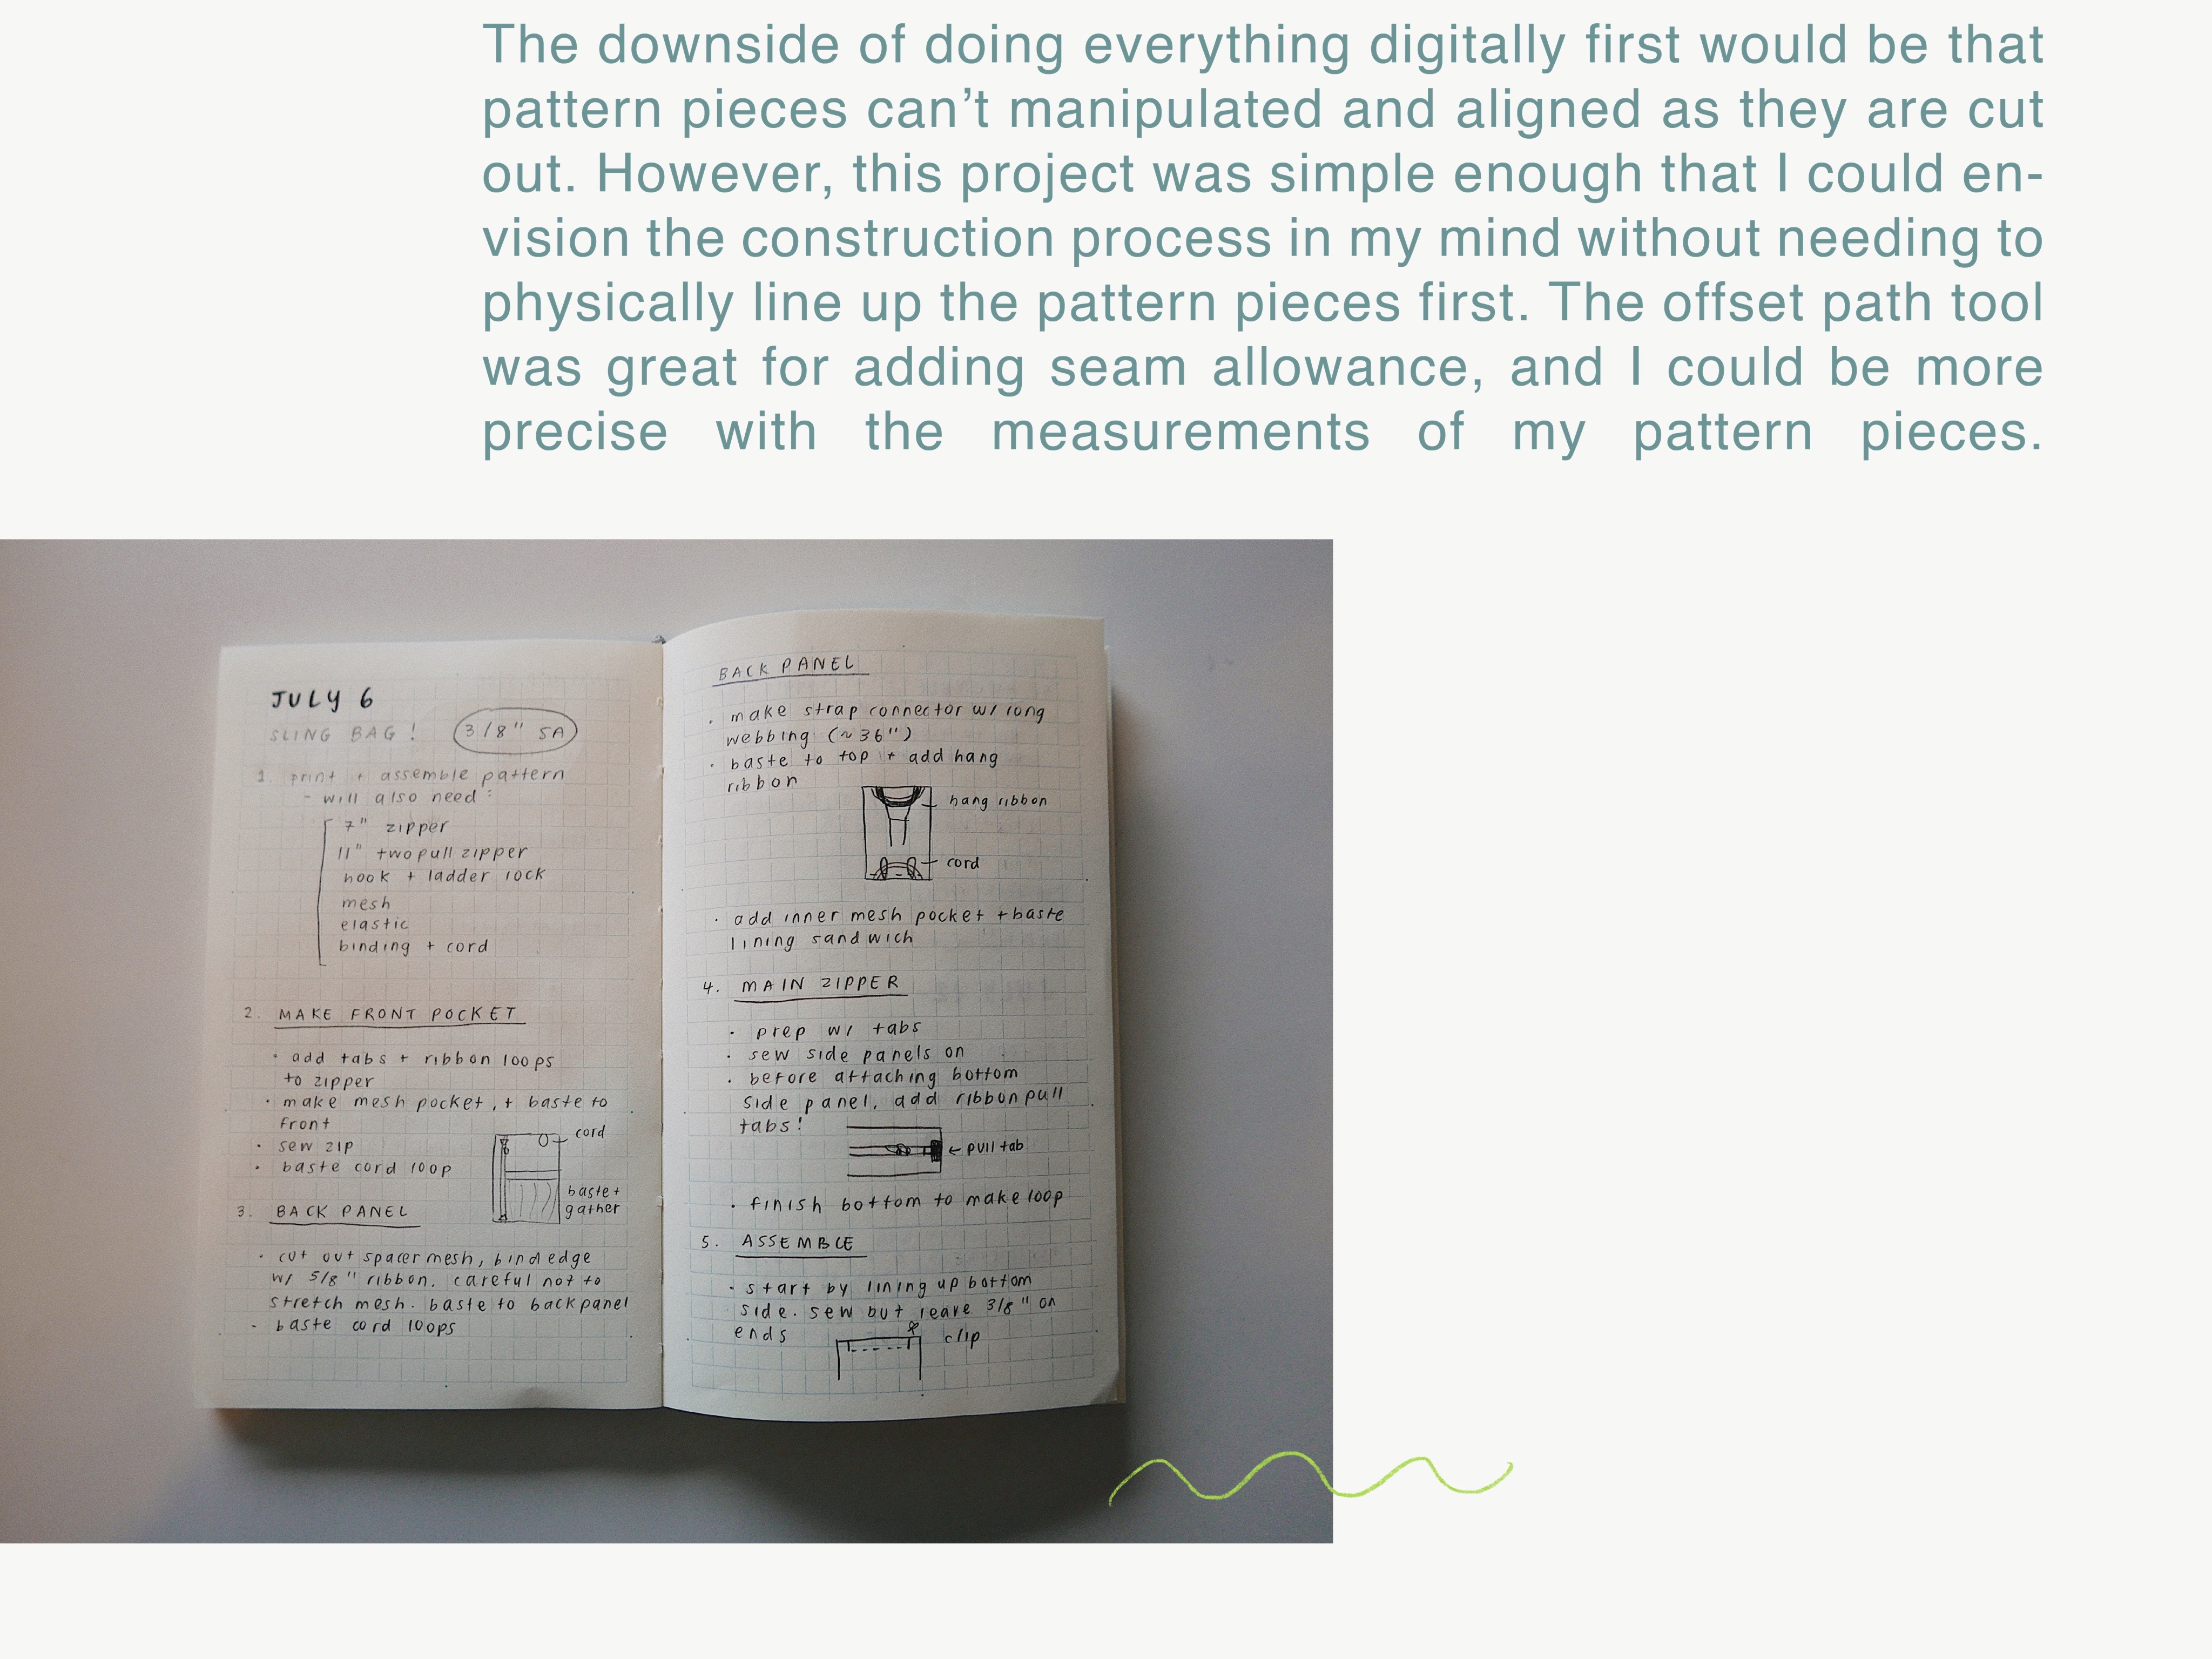 The downside of doing everything digitally first would be that
pattern pieces can’t manipulated and aligned as they are cut
out. However, this project was simple enough that I could en-
vision the construction process in my mind without needing to
physically line up the pattern pieces first. The offset path tool
was great for adding seam allowance, and I could be more
precise with the measurements of my pattern pieces.
JULY 6
SLING BAG! 3/8" SA
1. print + assemble pattern
- will also need:
7" zipper
11" two pull zipper
hook + ladder lock
mesh
elastic
binding + cord
2. MAKE FRONT POCKET
· add tabs + ribbon loops
to zipper
· make mesh pocket, + baste to
front
· sew zip
· baste cord loop
cord
baste +
gather
3. BACK PANEL
· cut out spacer mesh, bind edge
w/ 5/8" ribbon. careful not to
stretch mesh. baste to back panel
- baste cord loops
BACK PANEL
· make strap connector w/ long
webbing (~36")
· baste to top + add hang
ribbon
hang ribbon
cord
· add inner mesh pocket + baste
lining sandwich
4. MAIN ZIPPER
· prep w/ tabs
· sew side panels on
· before attaching bottom
side panel, add ribbon pull
tabs!
← pull tab
· finish bottom to make loop
5. ASSEMBLE
· start by lining up bottom
side. sew but leave 3/8" on
ends
clip